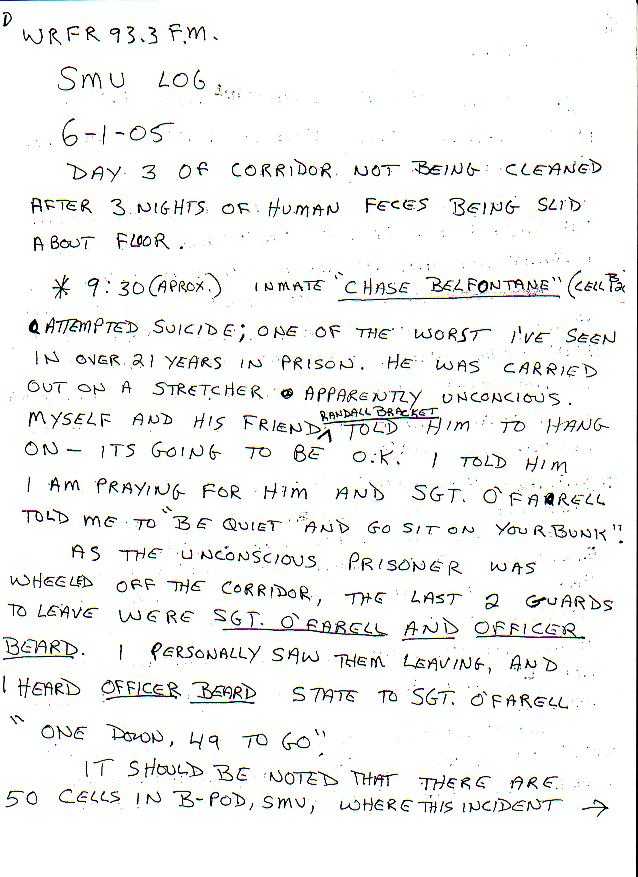 D
WRFR 93.3 F.M.
SMU LOG
6-1-05
DAY 3 OF CORRIDOR NOT BEING CLEANED
AFTER 3 NIGHTS OF HUMAN FECES BEING SLID
ABOUT FLOOR.
* 9:30 (APROX.) INMATE "CHASE BELFONTANE" (CELL
ATTEMPTED SUICIDE; ONE OF THE WORST I'VE SEEN
IN OVER 21 YEARS IN PRISON. HE WAS CARRIED
OUT ON A STRETCHER APPARENTLY UNCONCIOUS.
RANDALL BRACKET
MYSELF AND HIS FRIEND TOLD HIM TO HANG
ON - ITS GOING TO BE O.K. I TOLD HIM
I AM PRAYING FOR HIM AND SGT. O'FARRELL
TOLD ME TO "BE QUIET AND GO SIT ON YOUR BUNK".
AS THE UNCONSCIOUS PRISONER WAS
WHEELED OFF THE CORRIDOR, THE LAST 2 GUARDS
TO LEAVE WERE SGT. O'FARELL AND OFFICER
BEARD. I PERSONALLY SAW THEM LEAVING, AND
I HEARD OFFICER BEARD STATE TO SGT. O'FARELL
"ONE DOWN, 49 TO GO".
IT SHOULD BE NOTED THAT THERE ARE
50 CELLS IN B-POD, SMU, WHERE THIS INCIDENT →